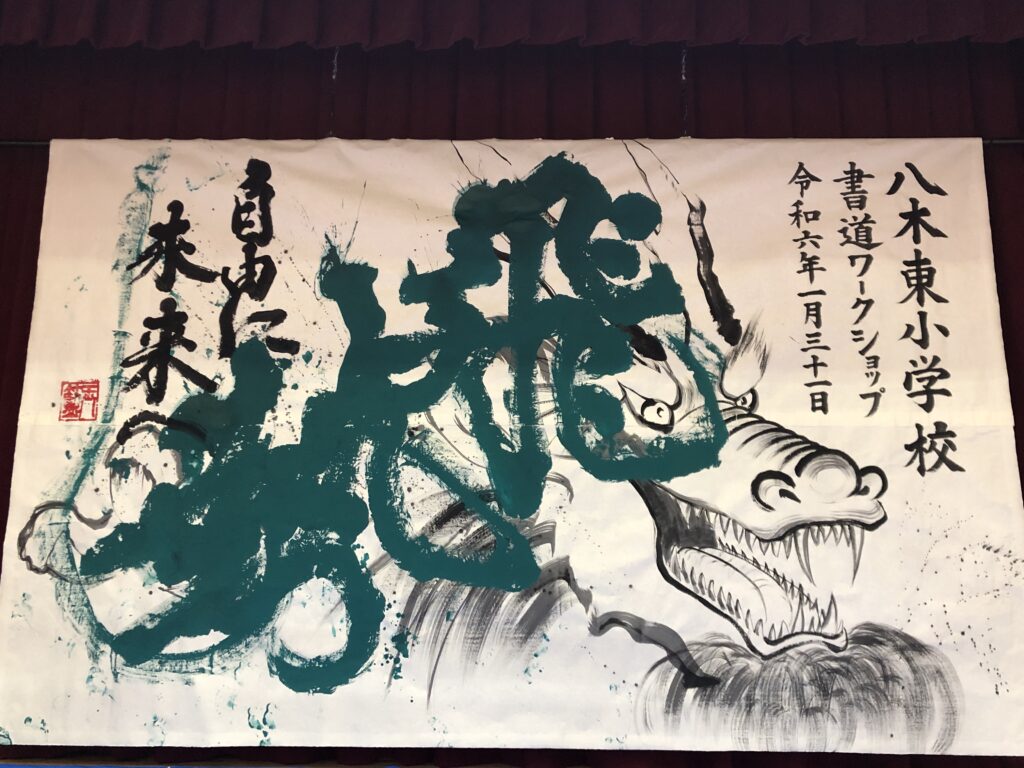 八木東小学校
書道ワークショップ
令和六年一月三十一日
自由に
未来へ